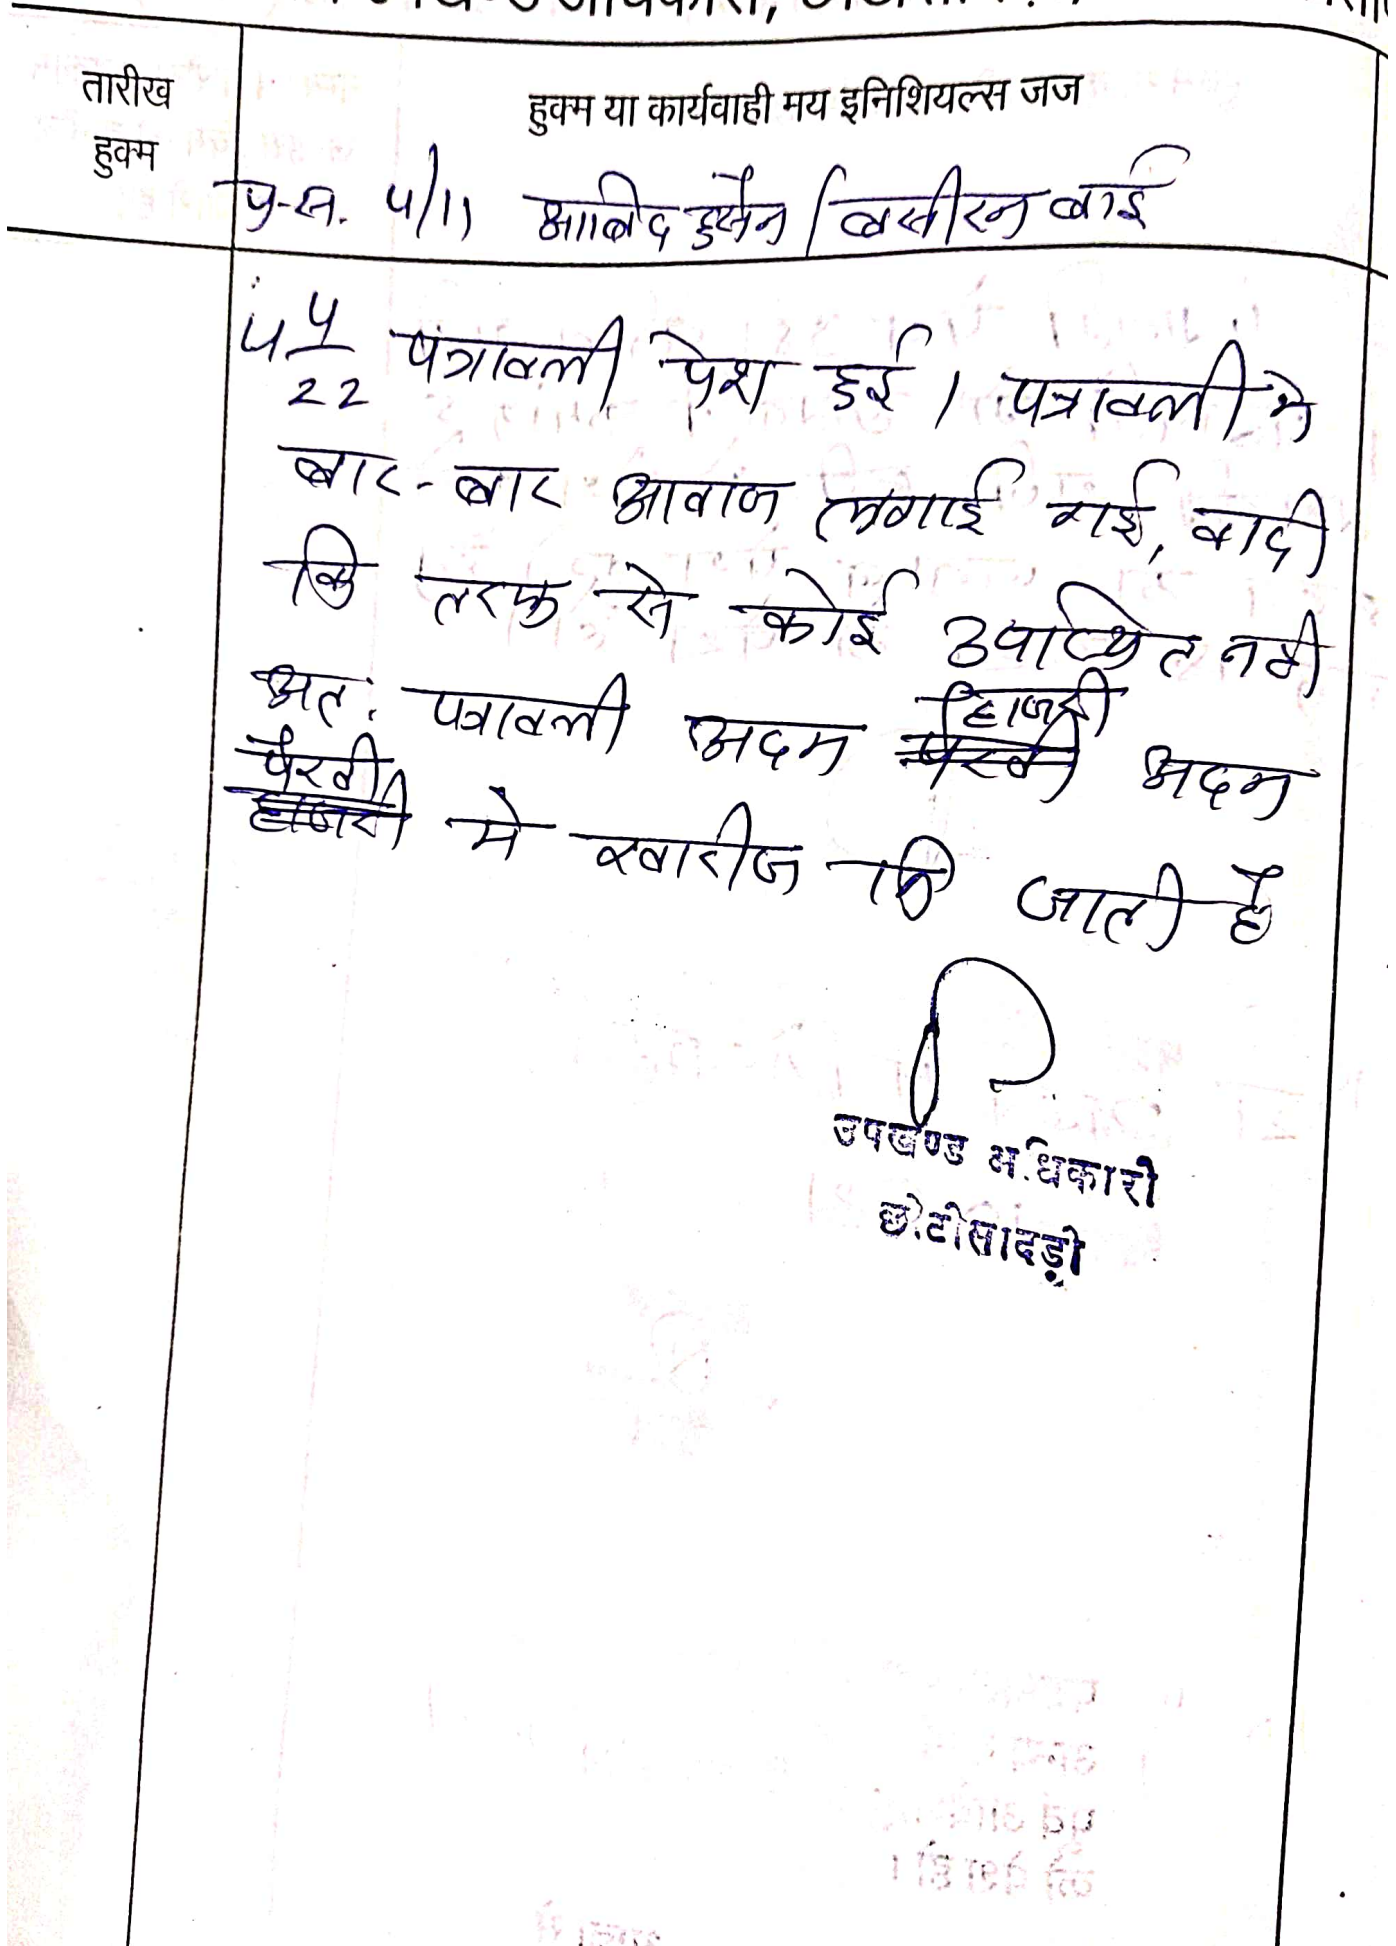 तारीख
हुक्म
हुक्म या कार्यवाही मय इनिशियल्स जज
प्र.स. 4/11 आबिद हुसैन / बसीरन बाई
4 4/22 पत्रावली पेश हुई। पत्रावली मे
बार-बार आवाज लगाई गई, वादी
कि तरफ से कोई उपस्थित नही
अत: पत्रावली अदम हाजरी अदम
पैरवी मे खारीज कि जाती है
उपखण्ड अधिकारी
छोटीसादड़ी